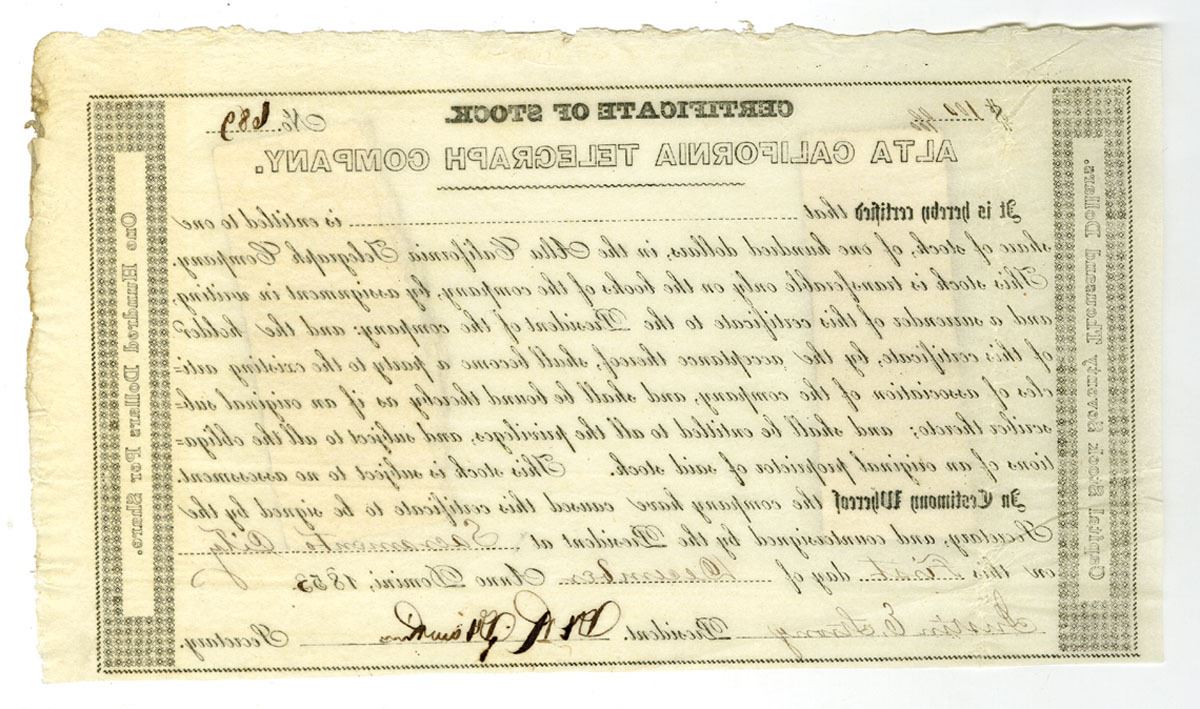 $100 No. 689
CERTIFICATE OF STOCK.
ALTA CALIFORNIA TELEGRAPH COMPANY.
It is hereby certified that is entitled to one
share of stock, of one hundred dollars, in the Alta California Telegraph Company.
This stock is transferable only on the books of the company, by assignment in writing,
and a surrender of this certificate to the President of the company; and the holder
of this certificate, by the acceptance thereof, shall become a party to the existing arti-
cles of association of the company, and shall be bound thereby as if an original sub-
scriber thereto; and shall be entitled to all the privileges, and subject to all the obliga-
tions of an original proprietor of said stock. This stock is subject to no assessment.
In Testimony Whereof the company have caused this certificate to be signed by the
Secretary, and countersigned by the President at Sacramento City,
on this First day of December Anno Domini, 1853.
President. Secretary.
Capital Stock Seventy Thousand Dollars.
One Hundred Dollars Per Share.